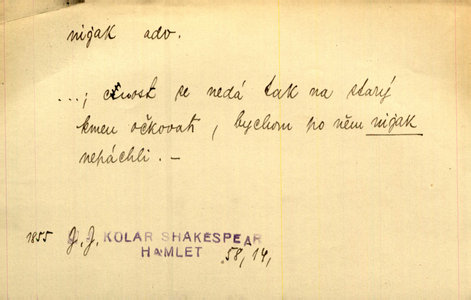 nijak adv.
...; ctnost se nedá tak na starý
kmen očkovati, bychom po něm nijak
nepáchli. —
1855 J. J. KOLAR SHAKESPEAR
HAMLET 58, 14,